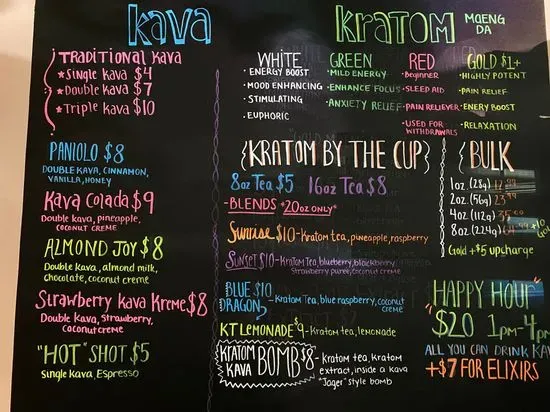 kava
TRADITIONAL KAVA
*Single Kava $4
*Double Kava $7
*Triple Kava $10
PANIOLO $8
DOUBLE KAVA, CINNAMON,
VANILLA, HONEY
Kava Colada $9
Double kava, pineapple,
coconut creme
ALMOND JOY $8
Double Kava, almond milk,
chocolate, coconut creme
Strawberry Kava Kreme $8
Double Kava, Strawberry,
Coconut creme
"HOT" SHOT $5
Single Kava, Espresso
kratom MAENG
DA
WHITE
• ENERGY BOOST
• MOOD ENHANCING
• STIMULATING
• EUPHORIC
GREEN
• MILD ENERGY
• ENHANCE FOCUS
• ANXIETY RELIEF
RED
• Beginner
• SLEEP AID
• PAIN RELIEVER
• USED FOR
WITHDRAWALS
GOLD $1+
• HIGHLY POTENT
• PAIN RELIEF
• ENERY BOOST
• RELAXATION
{KRATOM BY THE CUP}
8oz Tea $5 16oz Tea $8
-BLENDS *20oz ONLY*
Sunrise $10-Kratom tea, pineapple, raspberry
Sunset $10-Kratom tea, blueberry, blackberry
Strawberry puree, coconut creme
BLUE $10
DRAGON -Kratom Tea, blue raspberry, coconut
creme
KT LEMONADE $9-Kratom tea, lemonade
KRATOM
KAVA BOMB $8-Kratom tea, kratom
extract, inside a kava
"Jager" style bomb
{BULK
1oz (28g)
2oz (56g) 23.99
4oz (112g)
8oz (224g)
Gold +$5 upcharge
HAPPY HOUR
$20 1pm-4pm
ALL YOU CAN DRINK KAV
+$7 FOR ELIXIRS